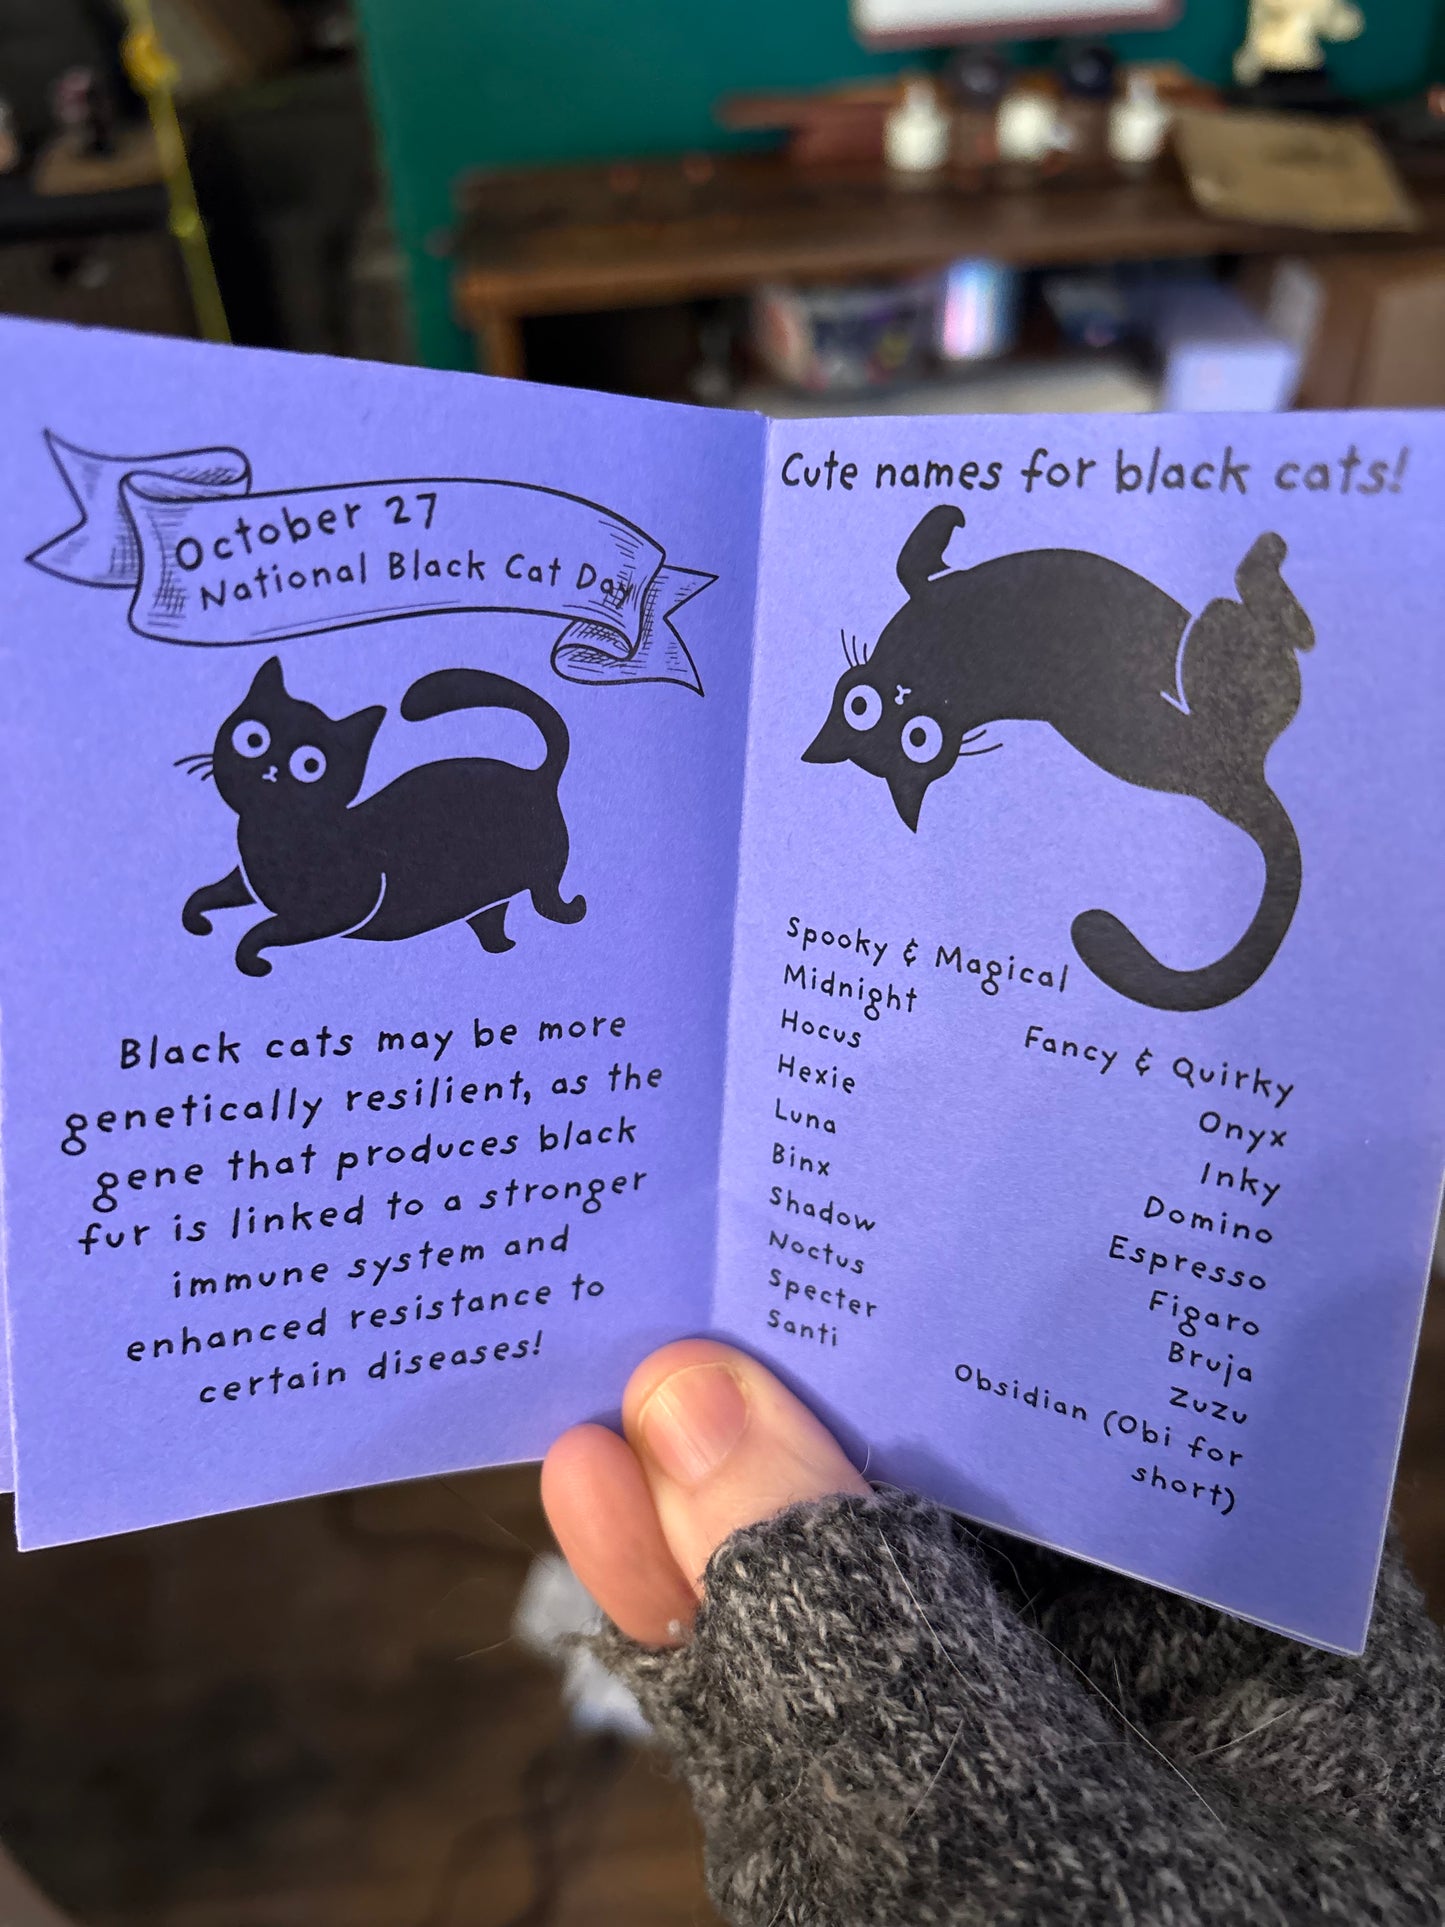 October 27
National Black Cat Day
Black cats may be more
genetically resilient, as the
gene that produces black
fur is linked to a stronger
immune system and
enhanced resistance to
certain diseases!
Cute names for black cats!
Spooky & Magical
Midnight
Hocus
Hexie
Luna
Binx
Shadow
Noctus
Specter
Santi
Fancy & Quirky
Onyx
Inky
Domino
Espresso
Figaro
Bruja
Zuzu
Obsidian (Obi for
short)